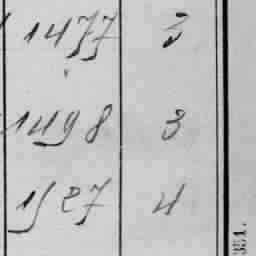 1477 2
1498 3
1527 4
351.